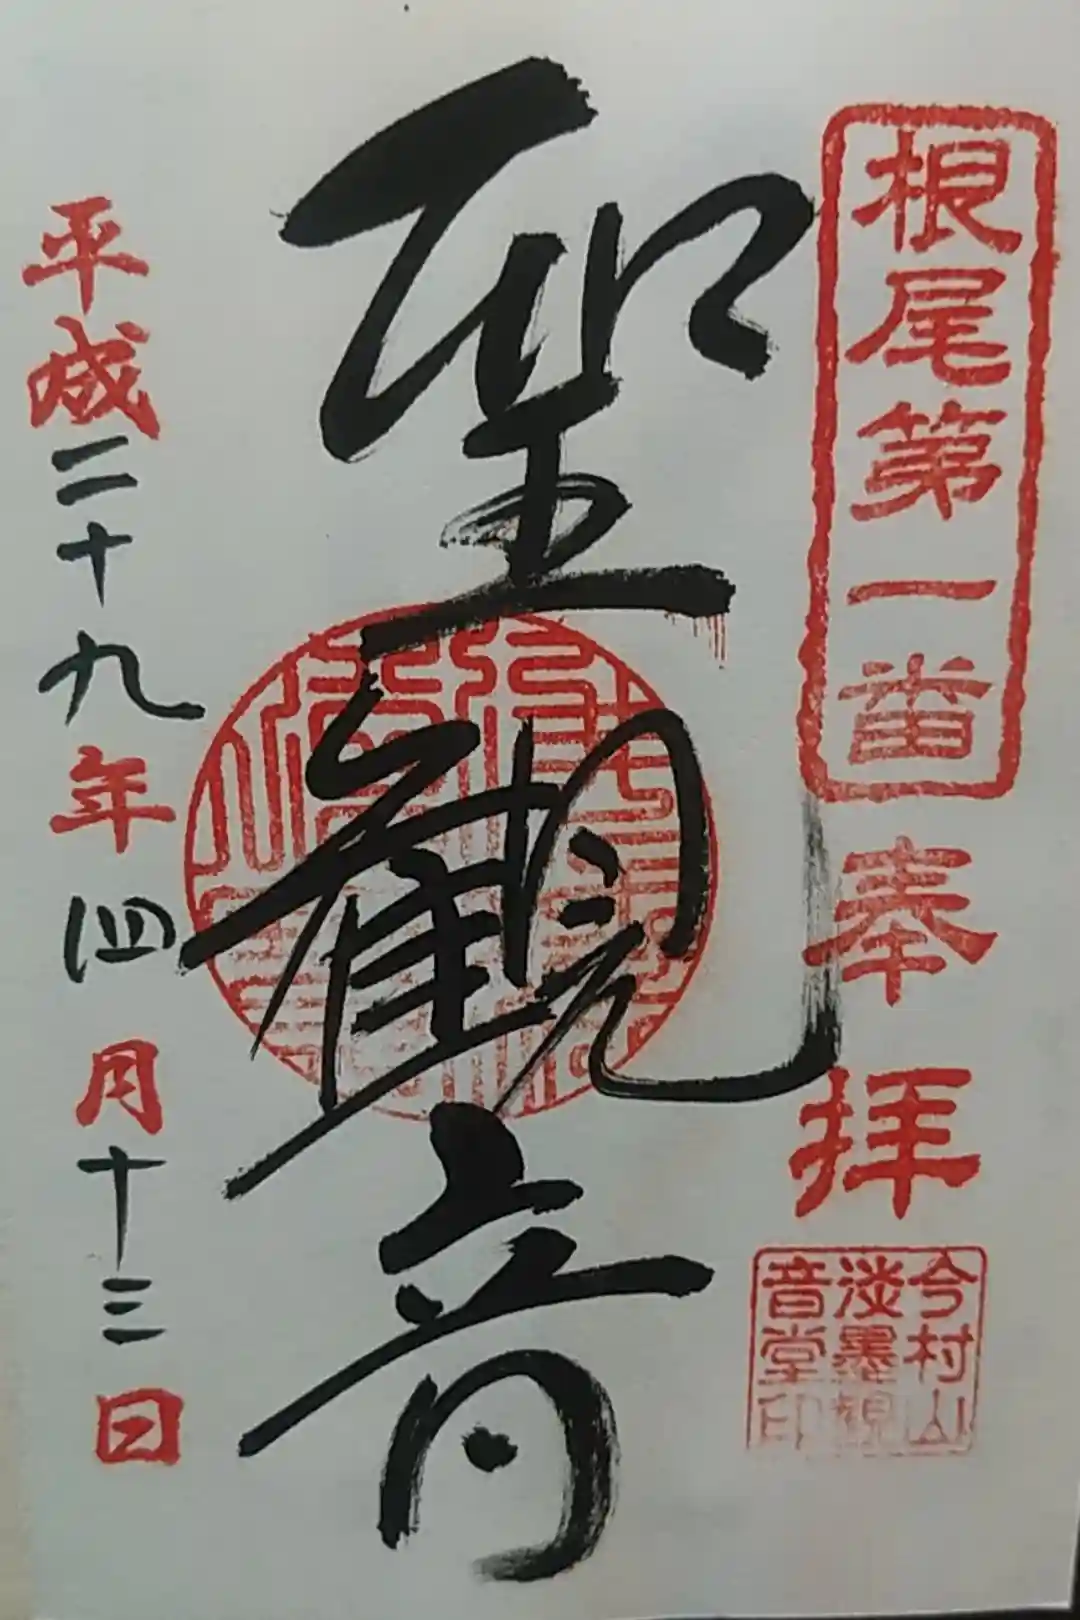 根尾第一番
奉拝
今村山
淡墨観
音堂印
聖観音
平成二十九年四月十三日